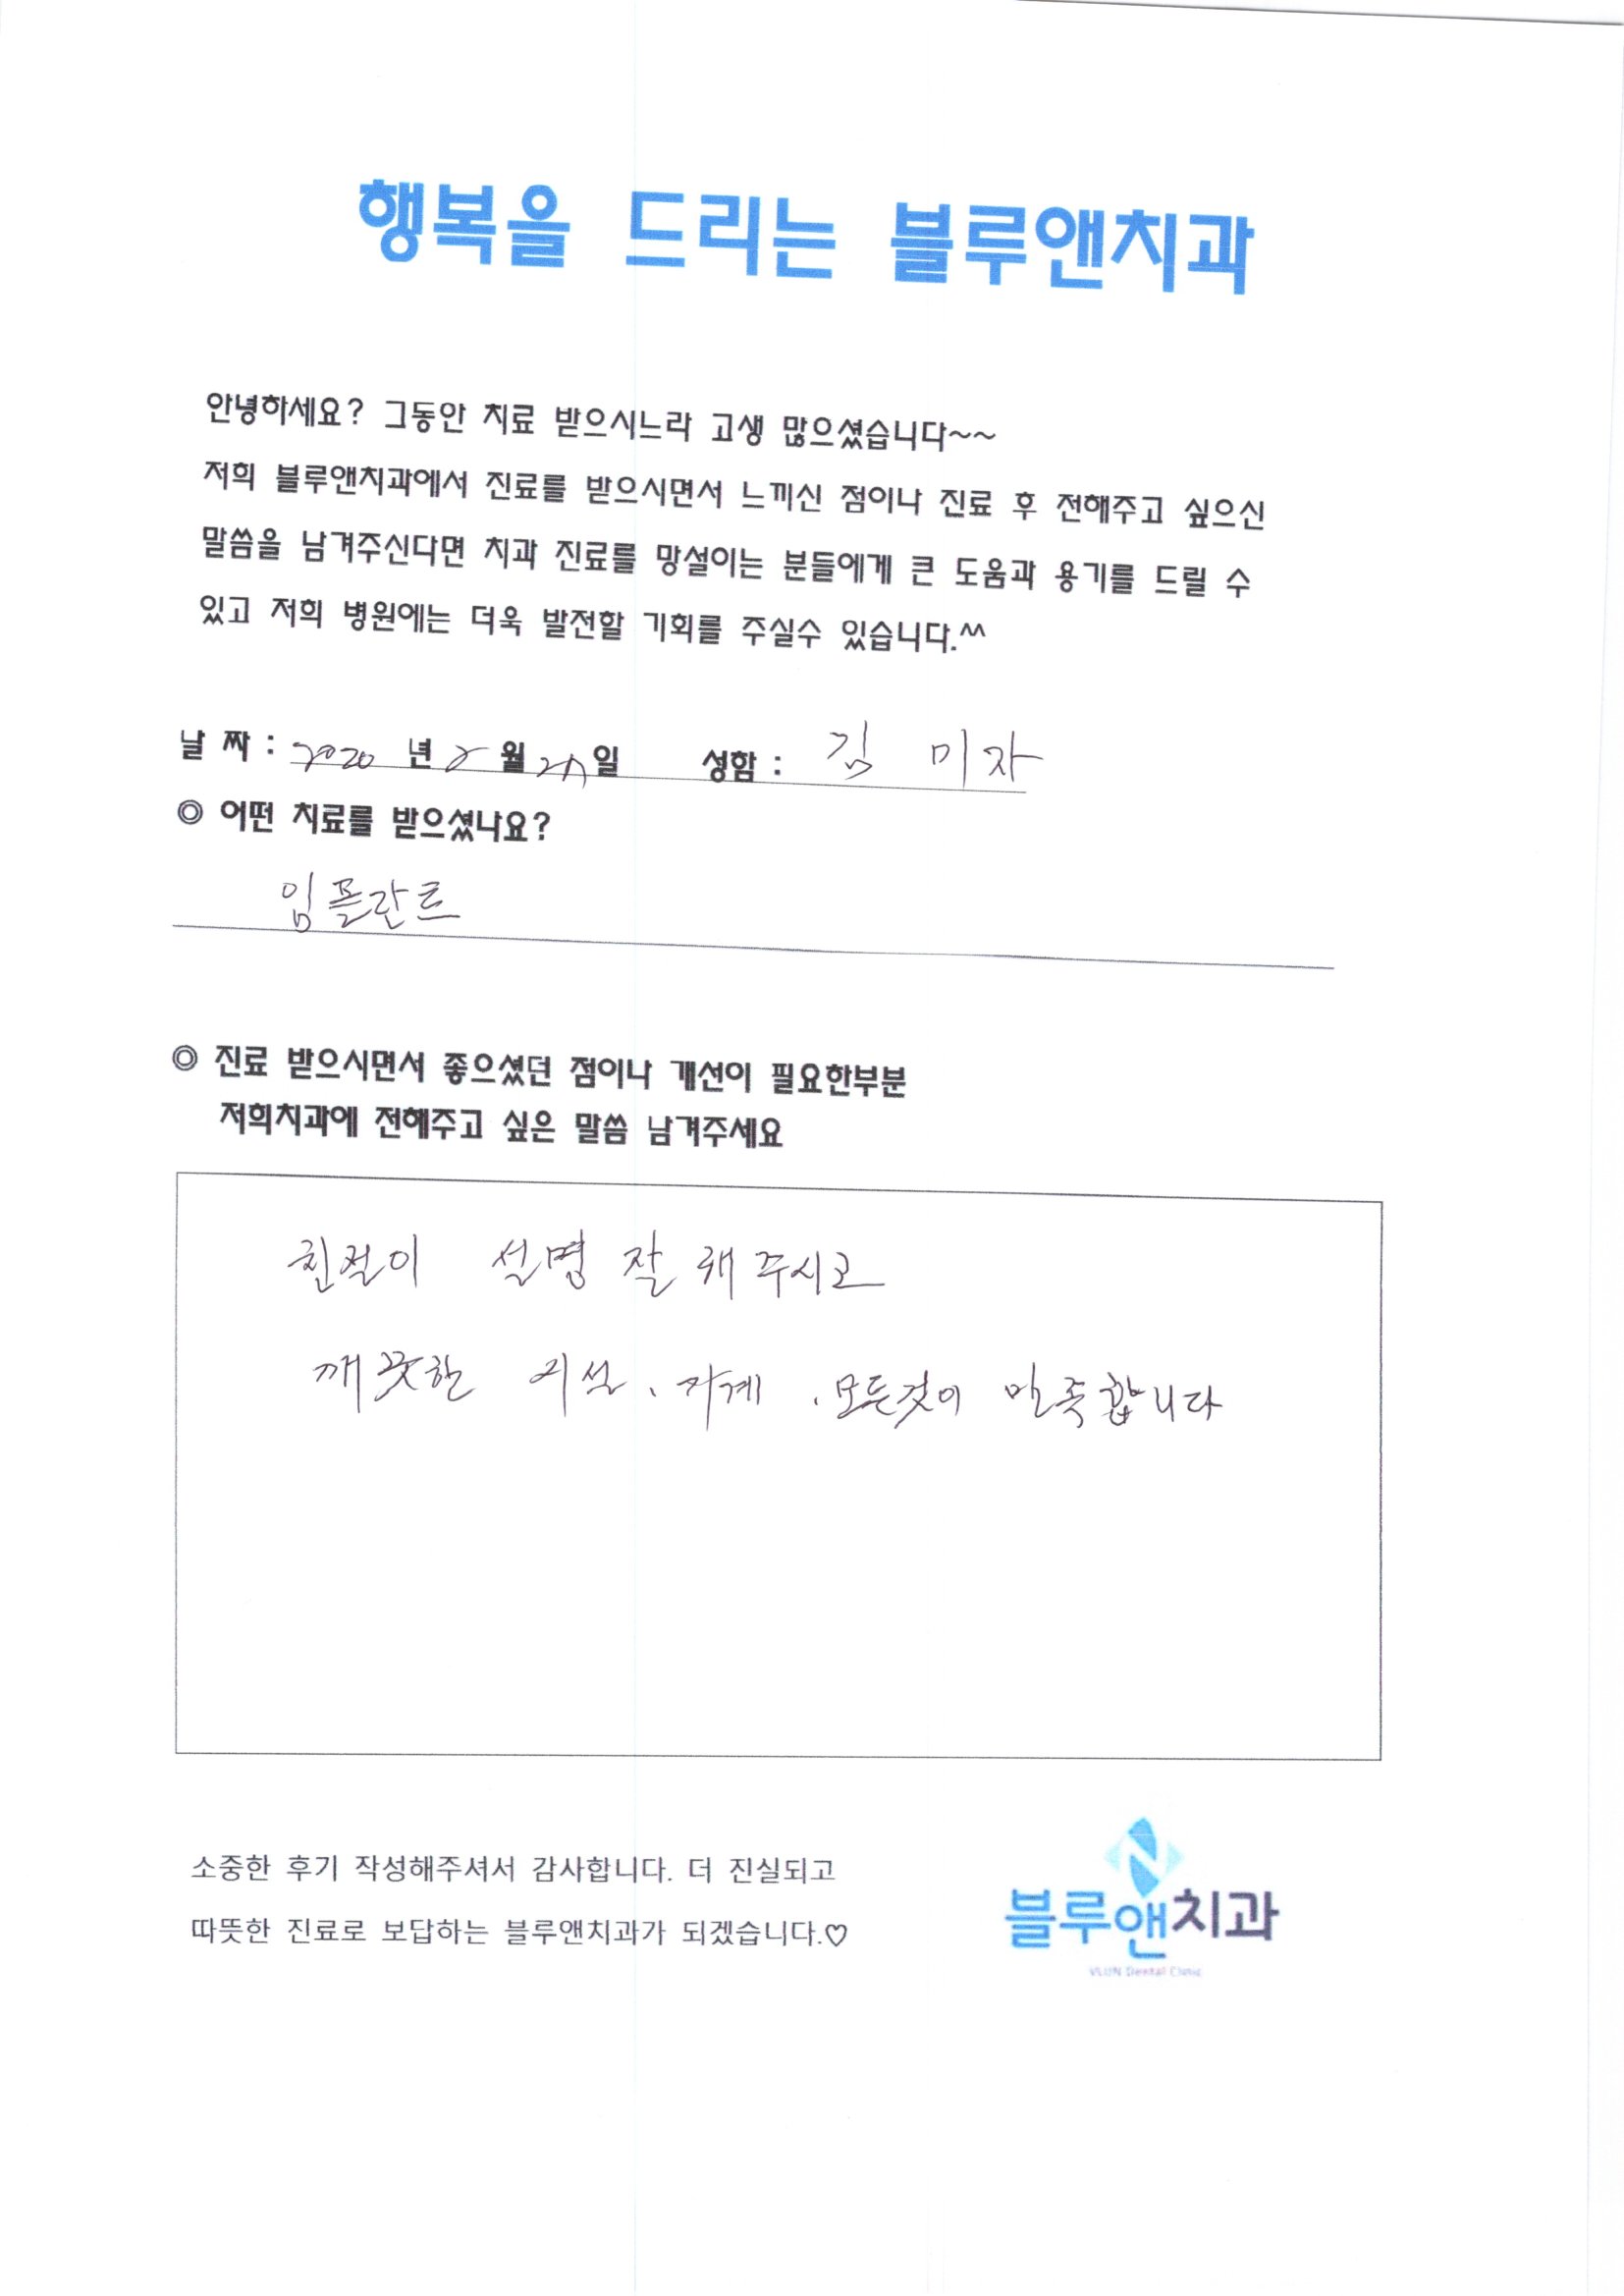 행복을 드리는 블루앤치과
안녕하세요? 그동안 치료 받으시느라 고생 많으셨습니다~~
저희 블루앤치과에서 진료를 받으시면서 느끼신 점이나 진료 후 전해주고 싶으신
말씀을 남겨주신다면 치과 진료를 망설이는 분들에게 큰 도움과 용기를 드릴 수
있고 저희 병원에는 더욱 발전할 기회를 주실수 있습니다.^^
날 짜 : 2020 년 2 월 일 성함 : 김 미자
◎ 어떤 치료를 받으셨나요?
임플란트
◎ 진료 받으시면서 좋으셨던 점이나 개선이 필요한부분
저희치과에 전해주고 싶은 말씀 남겨주세요
친절이 설명 잘 해 주시고
깨끗한 시설、 . 모든것이 만족합니다
소중한 후기 작성해주셔서 감사합니다. 더 진실되고
따뜻한 진료로 보답하는 블루앤치과가 되겠습니다.♡
블루앤치과
VLUN Dental Clinic